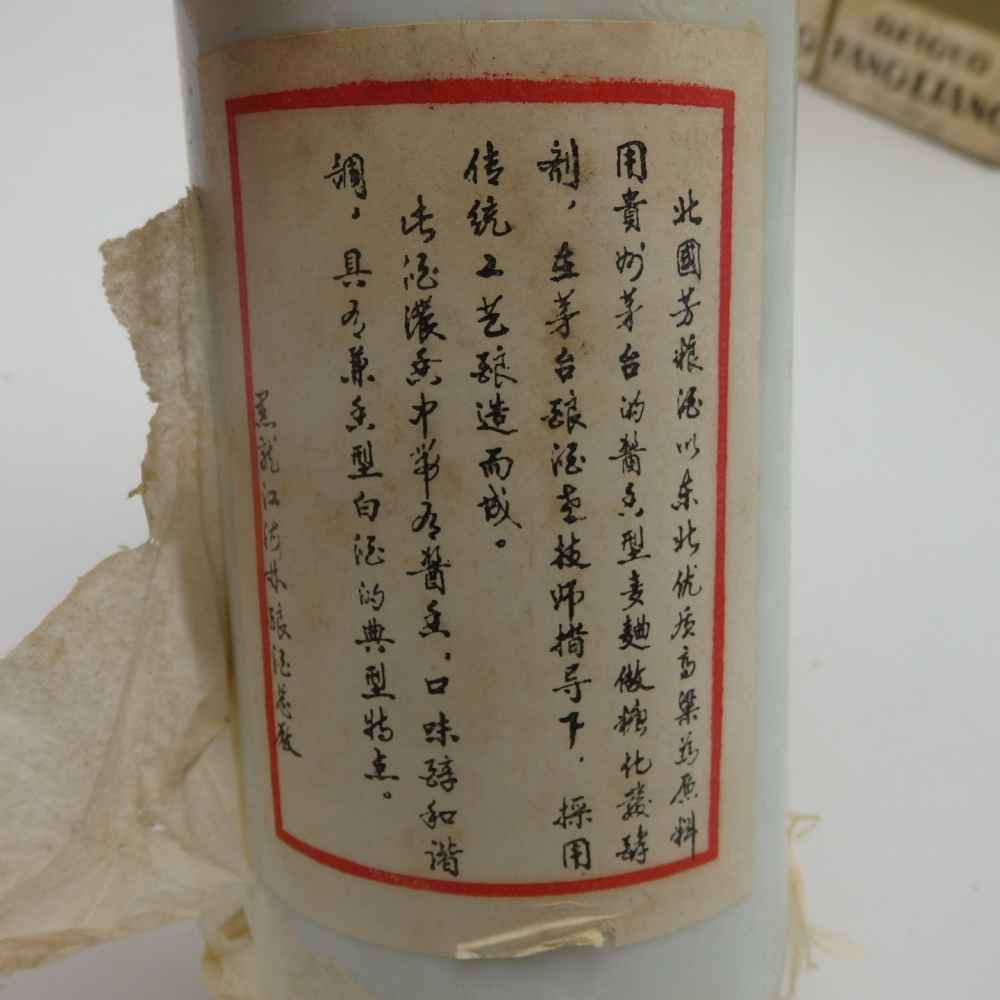 北國芳粮酒以东北优质高粱為原料
用貴州茅台的醬香型麦麯做糖化酸酵
剂，在茅台酿酒老技师指导下，採用
传统工艺酿造而成。
此酒濃香中带有醬香，口味醇和谐
調，具有兼香型白酒的典型特点。
黑龍江海林酿酒总厰
BEIGUO
FANGLIANG